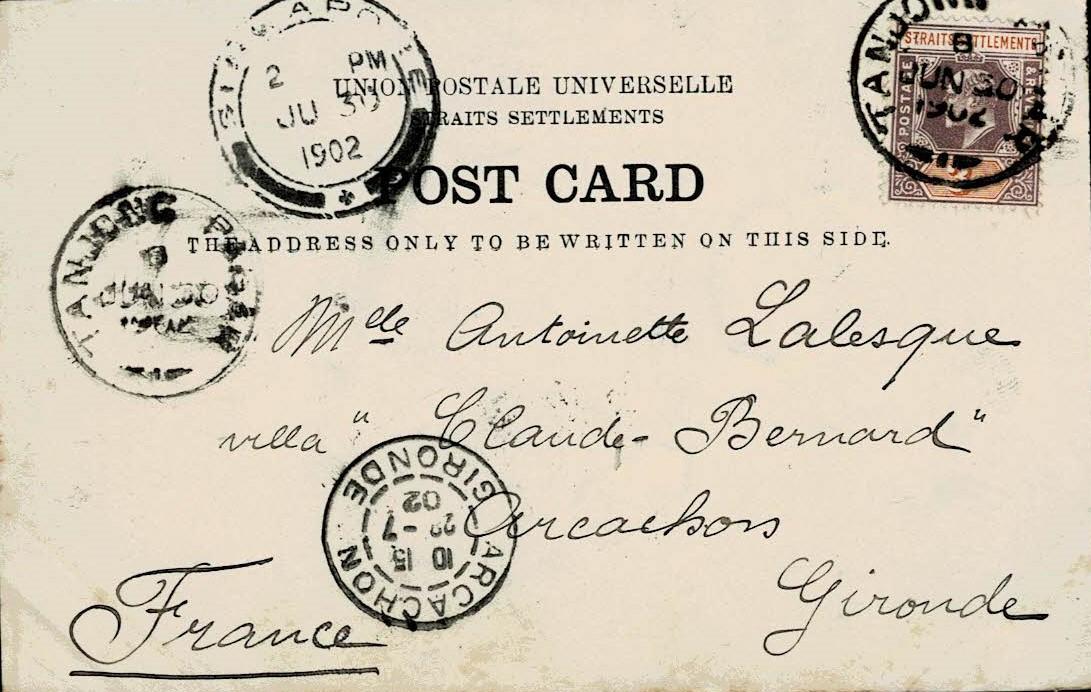 SINGAPORE
2 PM
JU 30
1902
UNION POSTALE UNIVERSELLE
STRAITS SETTLEMENTS
POST CARD
THE ADDRESS ONLY TO BE WRITTEN ON THIS SIDE.
STRAITS SETTLEMENTS
POSTAGE & REVENUE
TANJONG PAGAR
8
JUN 30
1902
TANJONG PAGAR
8
JUN 30
1902
Mlle Antoinette Lalesque
villa "Claude-Bernard"
Arcachon
Gironde
France
ARCACHON
GIRONDE
10 15
29 - 7
02